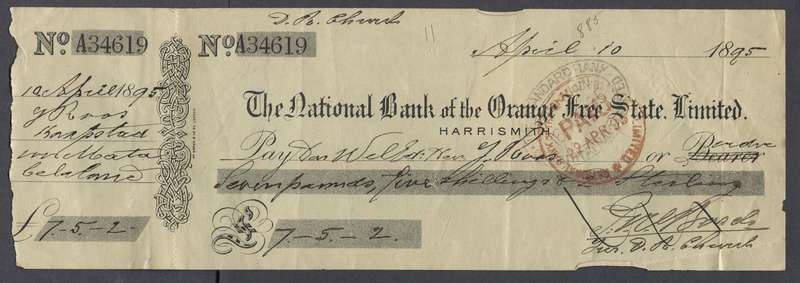 D. R. Church
11
885
No A34619
10 April 1895
J Roos
Kaapstad
£ 7-5-2-
No A34619
April 10 1895
The National Bank of the Orange Free State, Limited.
HARRISMITH
Pay Den Wel Ed. Heer J. Roos or Bearer
Seven pounds, five shillings & 2 Sterling
£ 7-5-2.
STANDARD BANK
PAID
22 APR 95
LIMITED
D. R. Church